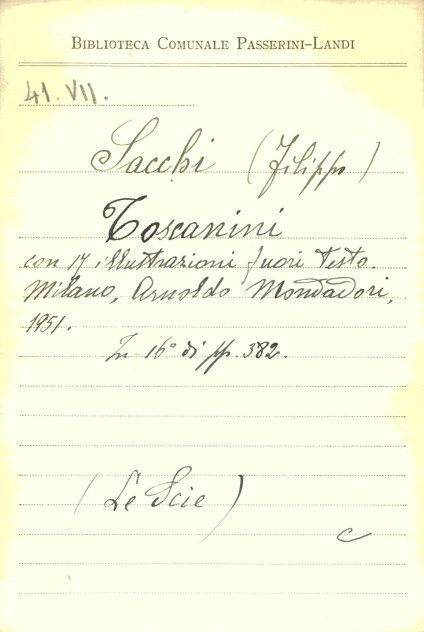 BIBLIOTECA COMUNALE PASSERINI-LANDI
41. VII.
Sacchi (Filippo)
Toscanini
con 17 illustrazioni fuori testo.
Milano, Arnoldo Mondadori,
1951.
In 16° di pp. 382.
(Le Scie)
C